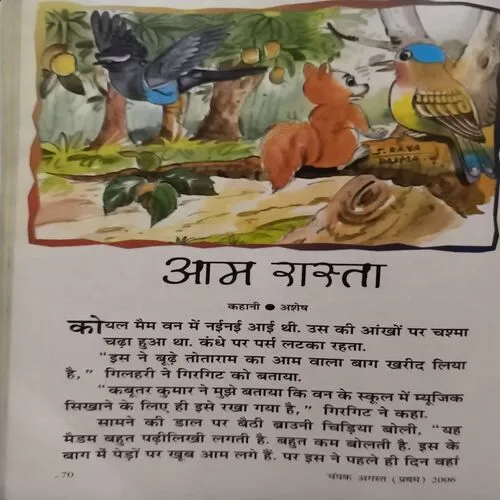 S. RAVA
आम रास्ता
कहानी ● अशेष
कोयल मैम वन में नईनई आई थी. उस की आंखों पर चश्मा
चढ़ा हुआ था. कंधे पर पर्स लटका रहता.
“इस ने बूढ़े तोताराम का आम वाला बाग खरीद लिया
है,” गिलहरी ने गिरगिट को बताया.
“कबूतर कुमार ने मुझे बताया कि वन के स्कूल में म्यूजिक
सिखाने के लिए ही इसे रखा गया है,” गिरगिट ने कहा.
सामने की डाल पर बैठी ब्राउनी चिड़िया बोली, “यह
मैडम बहुत पढ़ीलिखी लगती है. बहुत कम बोलती है. इस के
बाग में पेड़ों पर खूब आम लगे हैं. पर इस ने पहले ही दिन वहां
70
चंपक अगस्त (प्रथम) 2006